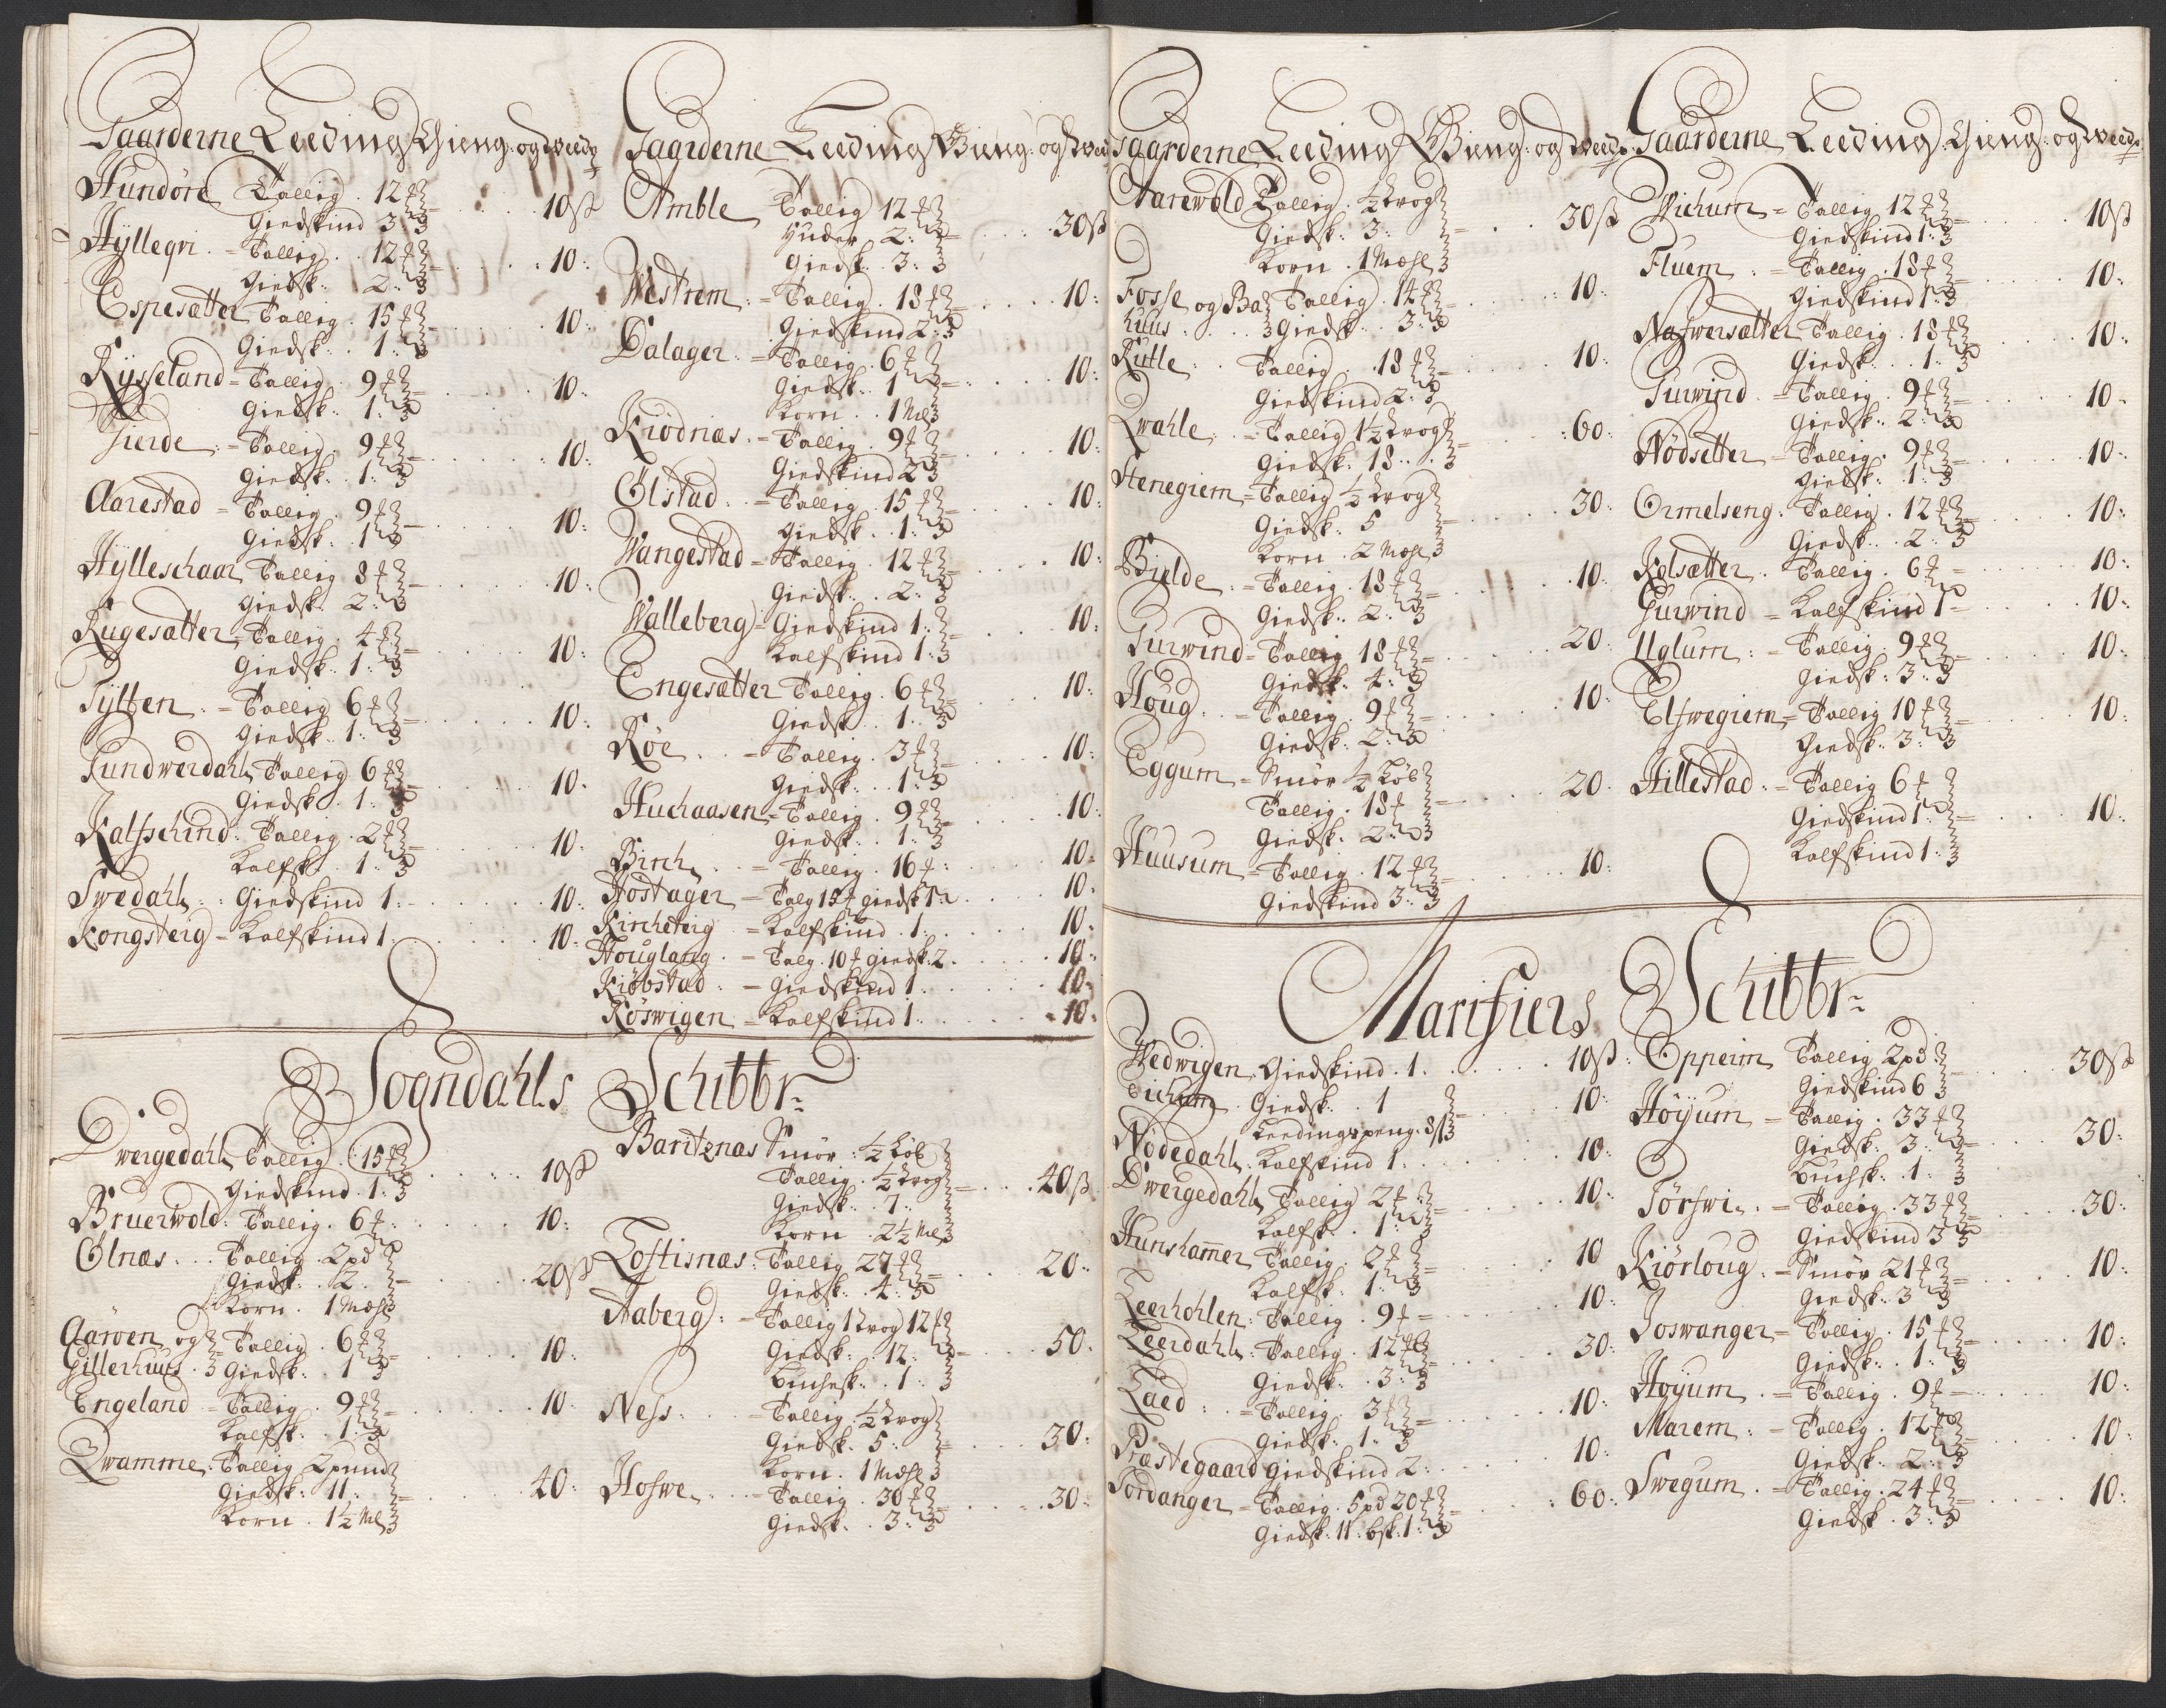 Gaarderne Leeding Gieng: og Dreeds
Hundöre Tallig. 12 ₰ 10ß
Giedskind 3
Hylleqvi = Tallig. 12 ₰ 10:
Giedsk: 2:
Espesætter Tallig. 15 ₰ 10:
Giedsk. 1:
Rysseland = Tallig. 9 ₰ 10:
Giedsk: 1:
Fierde = Tallig. 9 ₰ 10:
Giedsk. 1:
Aarestad = Tallig. 9 ₰ 10:
Giedsk: 1
Hylleschaar Tallig 8 ₰ 10:
Giedsk. 2:
Rugesætter = Tallig. 4 ₰ 10:
Giedsk. 1:
Tylten = Tallig 6 ₰ 10:
Giedsk. 1:
Sundwerdahl Tallig 6 ₰ 10:
Giedsk. 1:
Kalfschind Tallig. 2 ₰ 10:
Kalfsk. 1:
Swedahl: Giedskind 1: 10:
Kongsteig = Kalfskind 1: 10:
Gaarderne Leeding Gieng: og Dreeds
Amble Tallig 12 ₰ 30ß
Huder 2:
Giedsk. 3:
Westrem = Tallig. 18 ₰ 10:
Giedskind 2:
Dalager = Tallig. 6 ₰ 10:
Giedsk. 1
Korn. 1 Mæl
Kiödnæs = Tallig. 9 ₰ 10:
Giedskind 2
Ölstad = Tallig. 15 ₰ 10:
Giedsk. 1:
Wangestad = Tallig. 12 ₰ 10:
Giedsk. 2:
Walleberg = Giedskind 1: 10:
Kalfskind 1:
Engesætter Tallig. 6 ₰ 10:
Giedsk. 1:
Röe = Tallig. 3 ₰ 10:
Giedsk. 1:
Huchaasen = Tallig. 9 ₰ 10:
Giedsk. 1:
Birch = Tallig. 16 ₰ 10:
Hostager = Talg 15 ₰ giedsk 1 10:
Kircheteig = Kalfskind. 1. 10:
Houglang = Talg. 10 ₰ giedsk: 2. 10:
Kiöbstad = Giedskind 1. 10:
Röswigen = Kalfskind 1. 10:
Sogndahls Schibbr:
Dwergedahl Tallig. 15 ₰ 10ß
Giedskind. 1:
Bruerwold: Tallig. 6 ₰ 10:
Ölnæs Tallig. 2 pd 20ß
Giedsk. 2.
Korn. 1 Mæhl
Aaroen og Tallig. 6 ₰ 10:
Gillerhuus. Giedsk. 1
Engeland Tallig. 9 ₰ 10:
Kalfsk: 1:
Qwamme. Tallig 2 pund 40:
Giedsk: 11:
Korn. 1½ Ml
Baritznæs Smör: ½ Löb 40ß
Tallig. ½ Trog
Giedsk. 7:
Korn. 2½ Ml
Loftisnæs: Tallig 27 ₰ 20:
Giedsk: 4:
Aaberg = Tallig 1 Trog 12 ₰ 50:
Giedsk: 12:
Buchsk: 1:
Ness. Tallig. ½ Trog 30:
Giedsk. 5:
Korn. 1 Mæhl
Hofwe Tallig. 30 ₰ 30:
Giedsk. 3:
Gaarderne Leeding Gieng: og Dreeds
Aarewold Tallig. ½ Trog 30ß
Giedsk: 3.
Korn. 1 Mæhl
Fosse og Ba Tallig. 14 ₰ 10:
huus Giedsk. 3:
Rutle Tallig. 18 ₰ 10:
Giedskind 2:
Qwahle = Tallig 1½ Trog 60:
Giedsk: 18
Stenegiem = Tallig ½ Trog 30:
Giedsk: 5
Korn. 2 Mæhl
Bielde = Tallig. 18 ₰ 10:
Giedsk: 2:
Turwind = Tallig 18 ₰ 20:
Giedsk: 4:
Houg = Tallig. 9 ₰ 10:
Giedsk: 2:
Eggum = Smör ½ Löb 20:
Tallig. 18 ₰
Giedsk: 2:
Huusum = Tallig. 12 ₰ 10:
Giedskind 3:
Gaarderne Leeding Gieng: og Dreeds
Wichum = Tallig 12 ₰ 10ß
Giedskind 1:
Fluem = Tallig. 18 ₰ 10:
Giedskind 1:
Nafwersætter Tallig. 18 ₰ 10:
Giedsk. 1:
Turwind = Tallig. 9 ₰ 10.
Giedsk: 2:
Nödsetter = Tallig. 9 ₰ 10:
Giedsk: 1:
Ormelseng: Tallig. 12 ₰ 10:
Giedsk. 2:
Kolsætter. Tallig. 6 ₰ 10:
Gurwind = Kalfskind 1 10:
Uglum = Tallig: 9 ₰ 10:
Giedsk: 3:
Elfwegiem = Tallig 10 ₰ 10:
Giedsk: 3:
Hillestad = Tallig 6 ₰ 10:
Giedskind 1:
Kalfskind 1:
Marifiers Schibbr:
Wedwigen Giedskind. 1. 10ß:
Eichum Giedsk. 1 10:
Leedingspeng: 8ß
Nödedahl: Kalfskind 1: 10:
Dwergedahl Tallig 2 ₰ 10:
Kalfsk. 1:
Hunshamer Tallig. 2 ₰ 10
Kalfsk. 1:
Leerhohlen: Tallig. 9 ₰ = 10:
Leerdahl: Tallig. 12 ₰ 30:
Giedsk. 3:
Laed = Tallig. 3 ₰ 10:
Giedsk: 1:
Præstegaard Giedskind 2: 10:
Jordanger = Tallig. 5 pd 20 ₰ 60:
Giedsk: 11: bsk: 1:
Eppeim Tallig 2 pd: 30ß
Giedskind 6
Höyum = Tallig. 33 ₰ 30:
Giedsk: 3:
Buchsk: 1:
Törfwi = Tallig. 33 ₰ 30:
Giedskind 3
Kiörloug = Smör 21 ₰ 10:
Giedsk: 3
Joswanger = Tallig. 15 ₰ 10:
Giedsk: 1:
Hoyum = Tallig. 9 ₰ 10:
Marem = Tallig. 12 ₰ 10:
Giedsk: 2:
Swegum = Tallig. 24 ₰ 10:
Giedsk. 3: